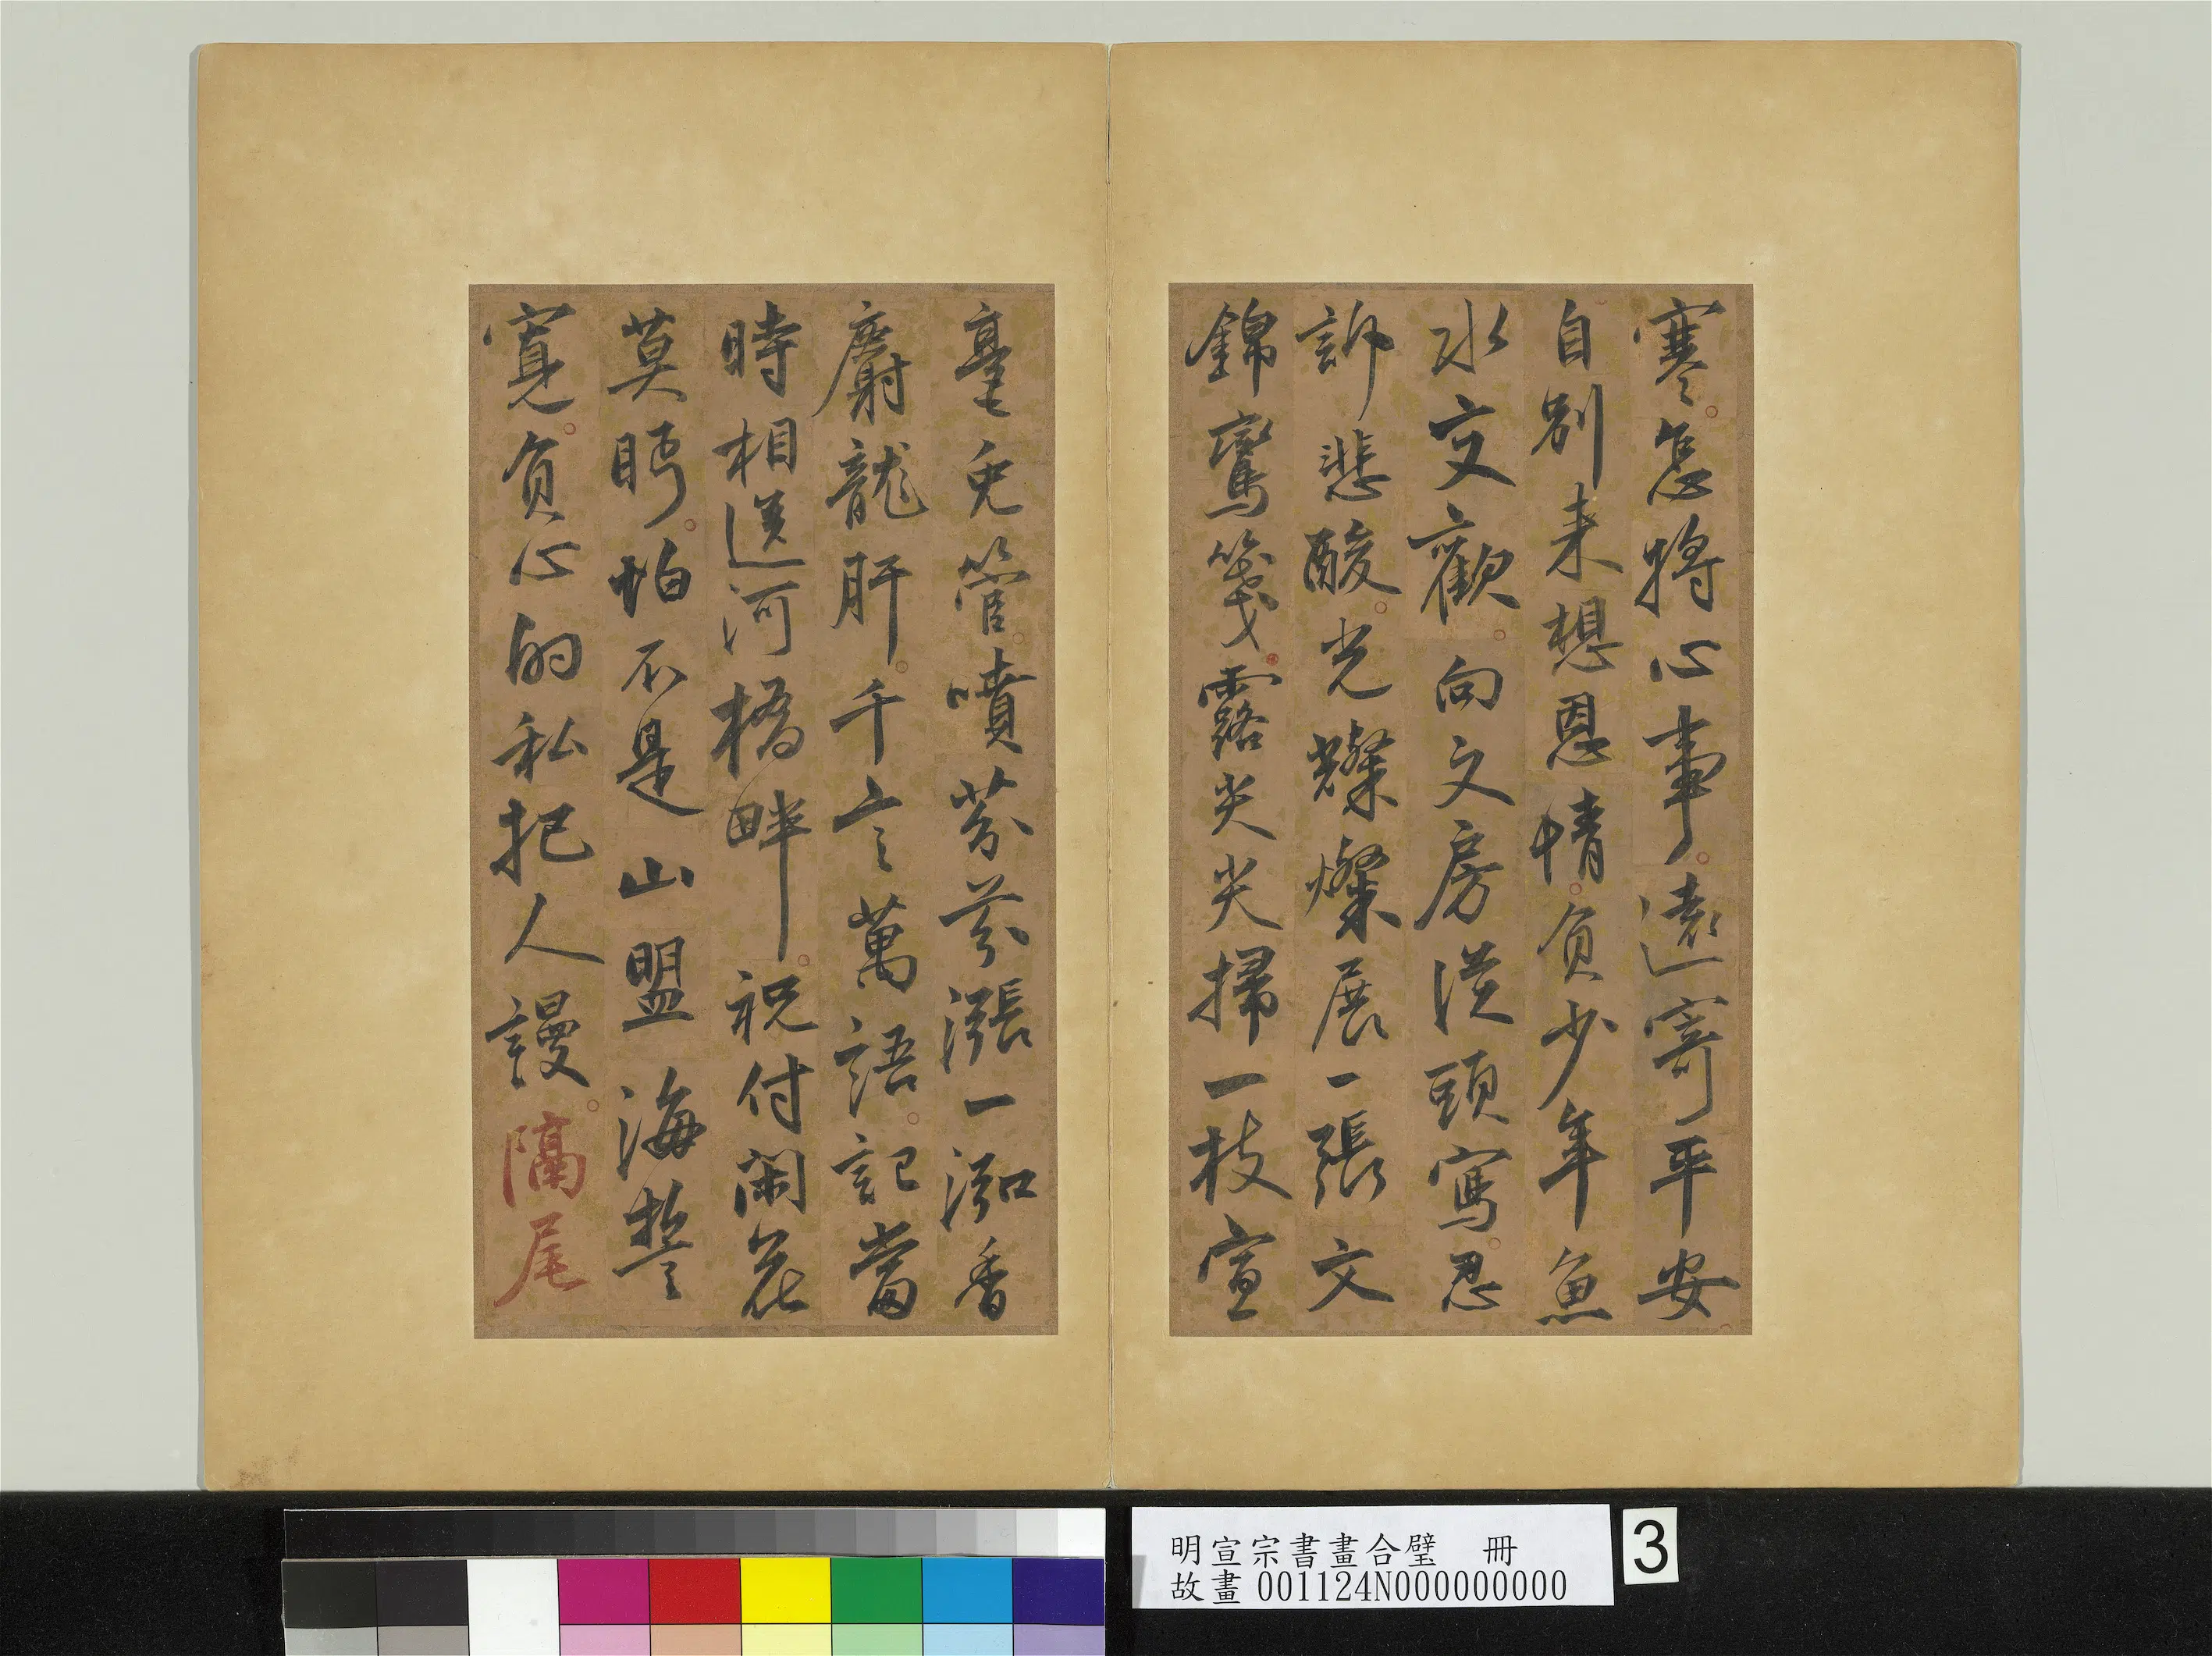 寒怎將心事遠寄平安
自別来想恩情負少年魚
水交歡向文房從頭寫忍
訴悲酸光燦燦展一張文
錦鸞箋露尖尖掃一枝宣
毫兔管噴芬芬漲一泓香
麝龍肝千言萬語記當
時相送河橋畔祝付閑花
莫眄怕不是山盟海誓
寬負心的私把人謾隔
尾
明宣宗書畫合璧 冊
故畫 001124N000000000
3